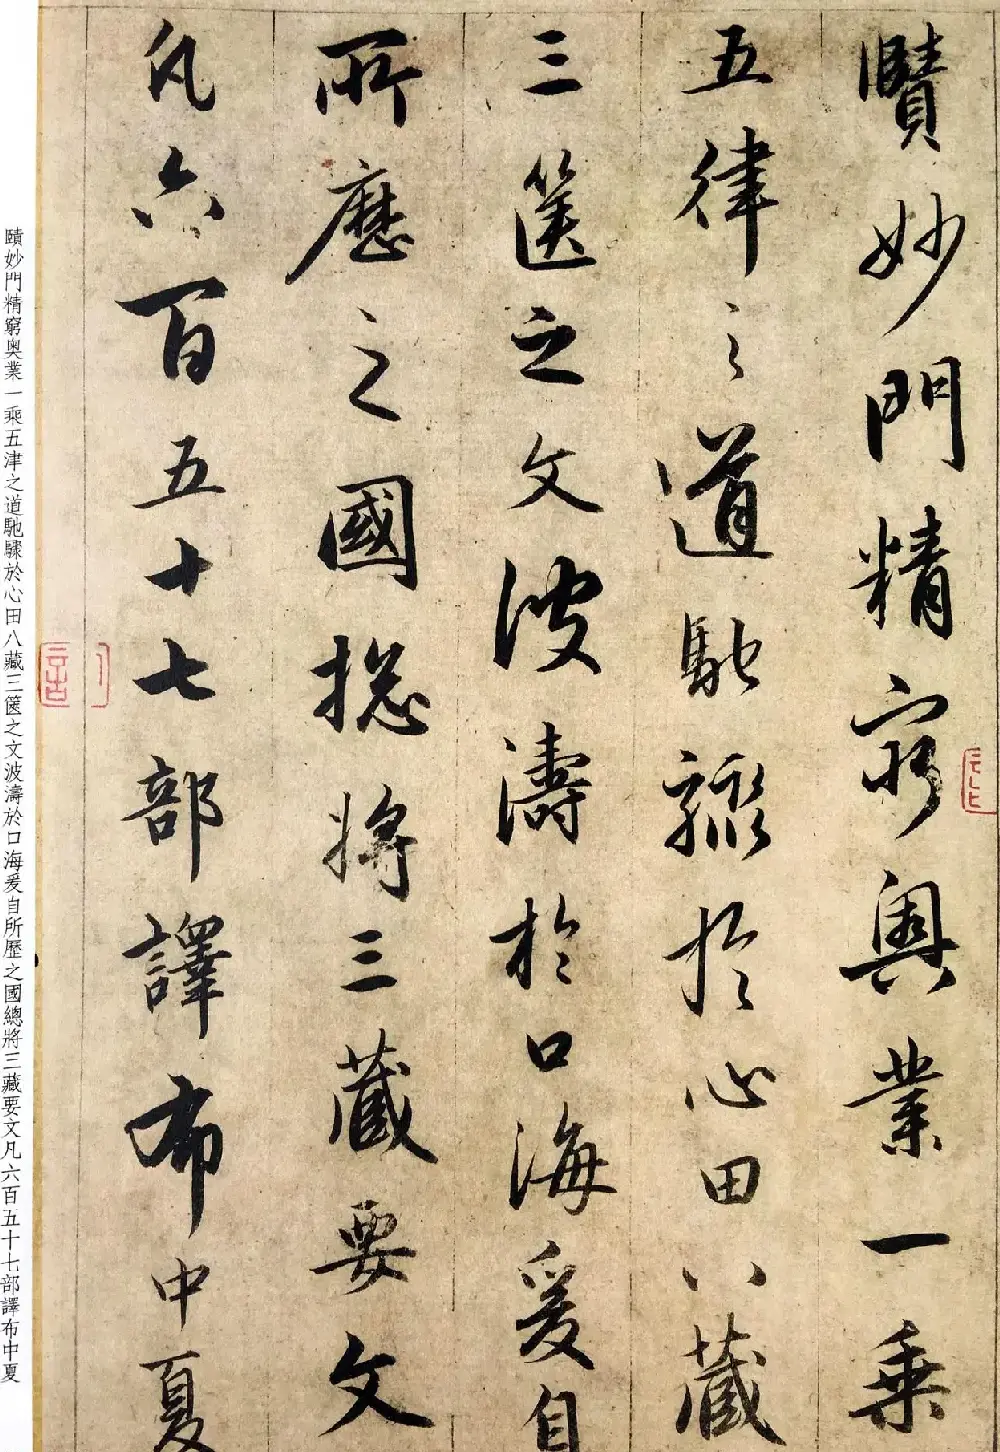 賾妙門精窮奥業一乗
五律之道馳驟於心田八藏
三篋之文波濤於口海爰自
所歷之國揔將三藏要文
凡六百五十七部譯布中夏
賾妙門精窮奥業一乘五津之道馳驟於心田八藏三篋之文波濤於口海爰自所歷之國總將三藏要文凡六百五十七部譯布中夏